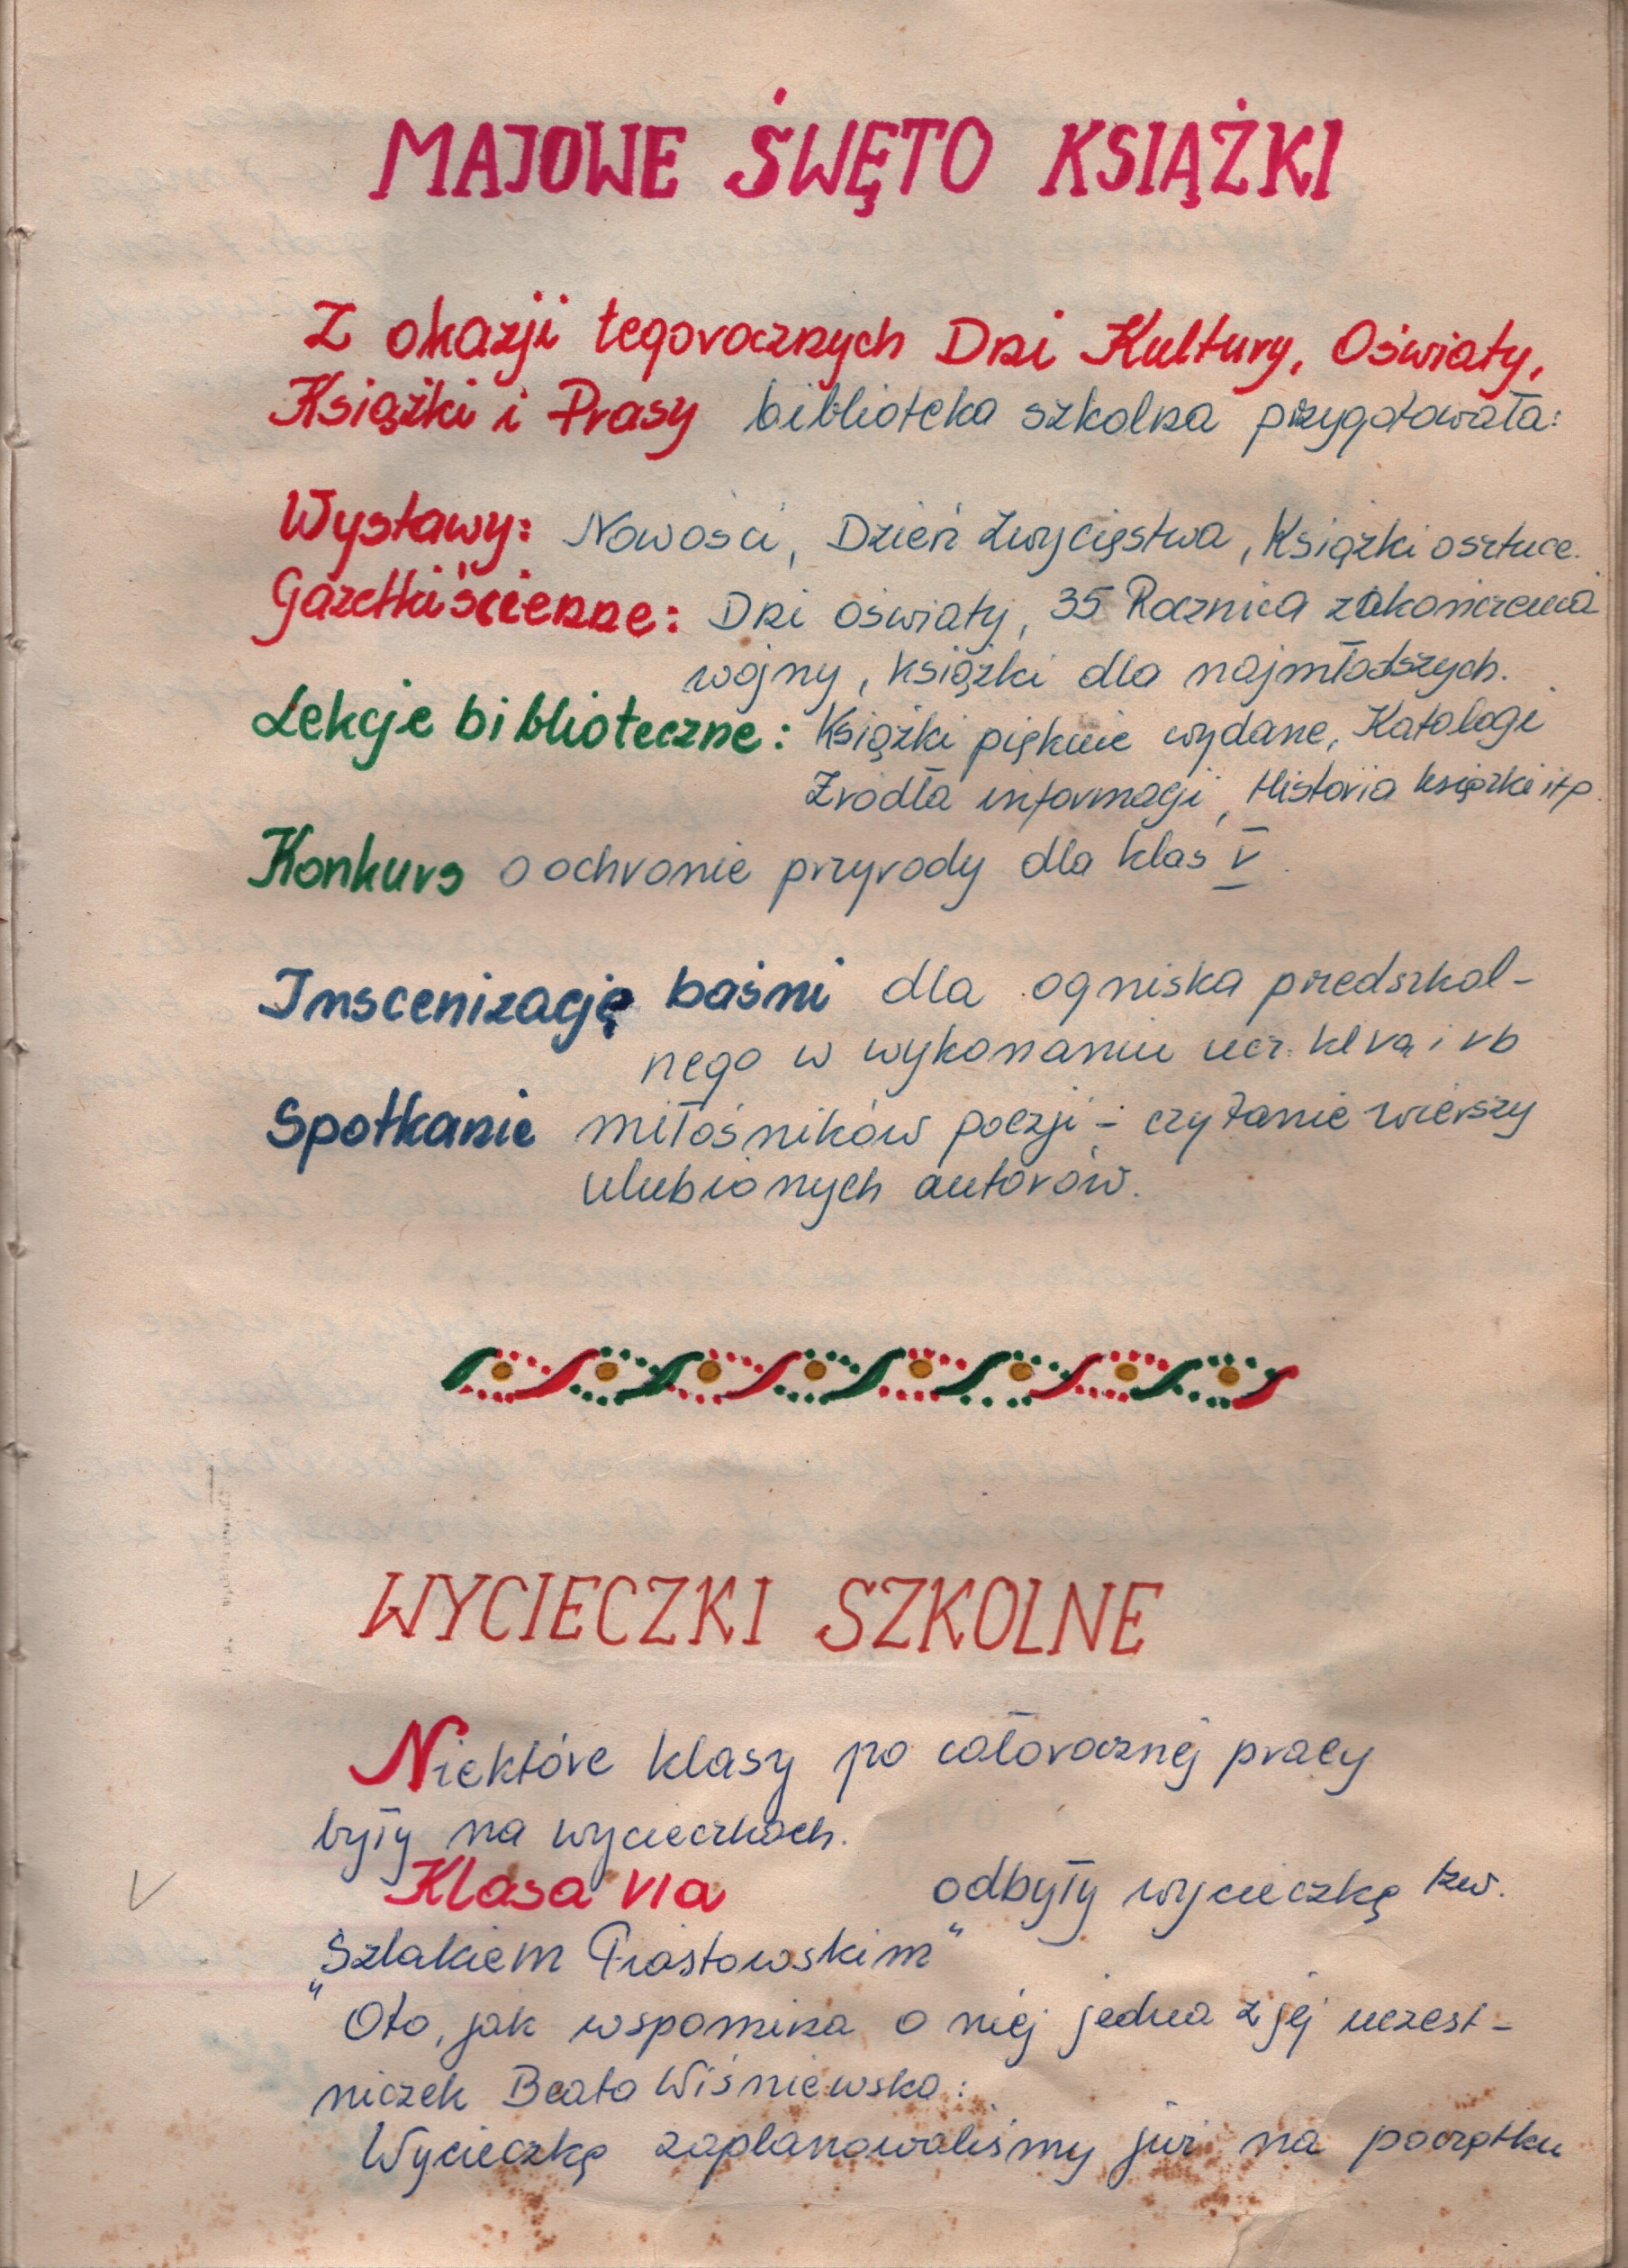 MAJOWE ŚWĘTO KSIĄŻKI
Z okazji tegorocznych Dni Kultury, Oświaty,
Książki i Prasy biblioteka szkolna przygotowała:
Wystawy: Nowości, Dzień Zwycięstwa, Książki o sztuce.
Gazetki ścienne: Dni oświaty, 35 Rocznica zakończenia
wojny, książki dla najmłodszych.
Lekcje biblioteczne: Książki pięknie wydane, Katalogi
Źródła informacji, Historia książki itp.
Konkurs o ochronie przyrody dla klas V.
Inscenizację baśni dla ogniska przedszkol-
nego w wykonaniu ucz. kl va i vb
Spotkanie miłośników poezji - czytanie wierszy
ulubionych autorów.
WYCIECZKI SZKOLNE
Niektóre klasy po całorocznej pracy
były na wycieczkach.
Klasa VIa odbyły wycieczkę tzw.
„Szlakiem Piastowskim"
Oto, jak wspomina o niej jedna z jej uczest-
niczek Beata Wiśniewska:
Wycieczkę zaplanowaliśmy już na początku